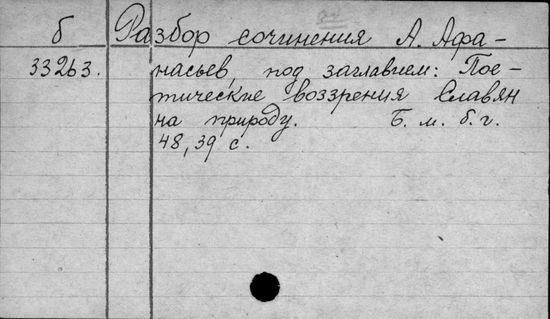 б Разбор сочинения А. Афа-
33263. насьев, под заглавием: Поэ-
тические воззрения Славян
на природу. Б. м. б. г.
48, 39 с.